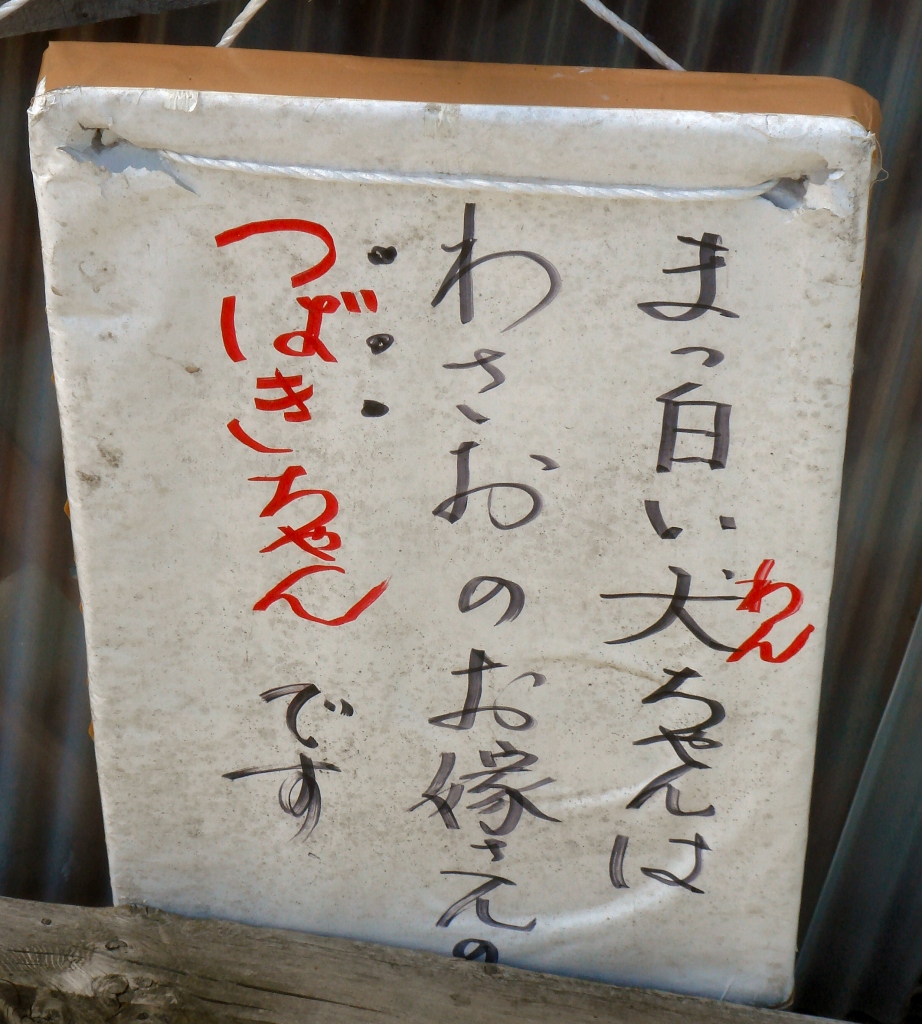 まっ白い犬ちゃんは
わん
わさおのお嫁さんの
つばきちゃんです